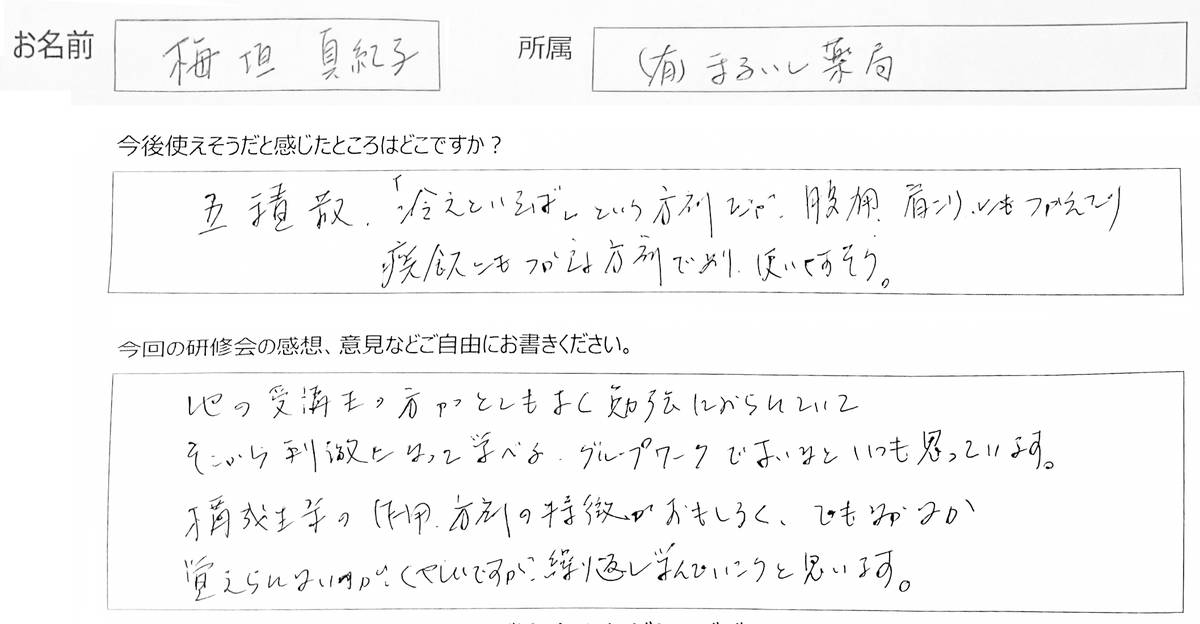 お名前 梅垣 真紀子 所属 (有)まるいし薬局
今後使えそうだと感じたところはどこですか？
五積散、「冷えといえば」という方剤だが、腹痛、肩こり、にもつかえたり
痰飲にもつかえる方剤であり、使いやすそう。
今回の研修会の感想、意見などご自由にお書きください。
他の受講生の方がとてもよく勉強しておられていて
そこから刺激になって学べる、グループワークでよいなといつも思っています。
構成生薬の作用、方剤の特徴がおもしろく、でもなかなか
覚えられないのが、くやしいですが、繰り返し学んでいこうと思います。